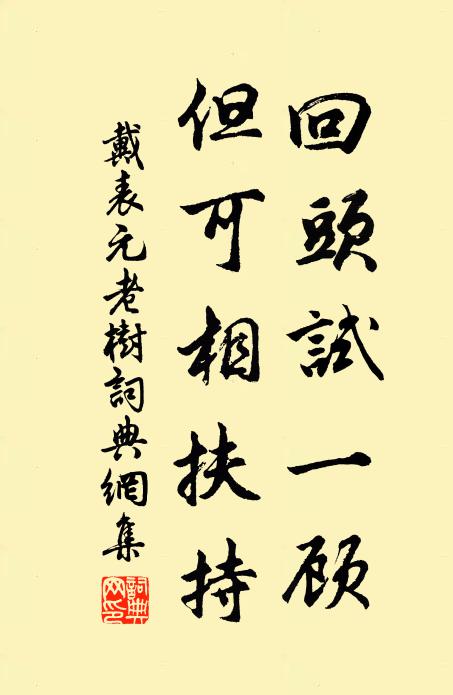 回頭試一顾
但可相扶持
戴表元老樹詞典網集
詞典网印